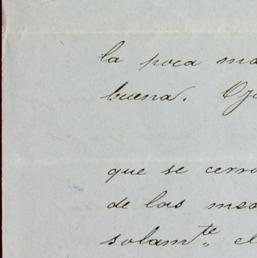 la poca ma
buena. Oja
que se cerra
de las mesa
solamte. el